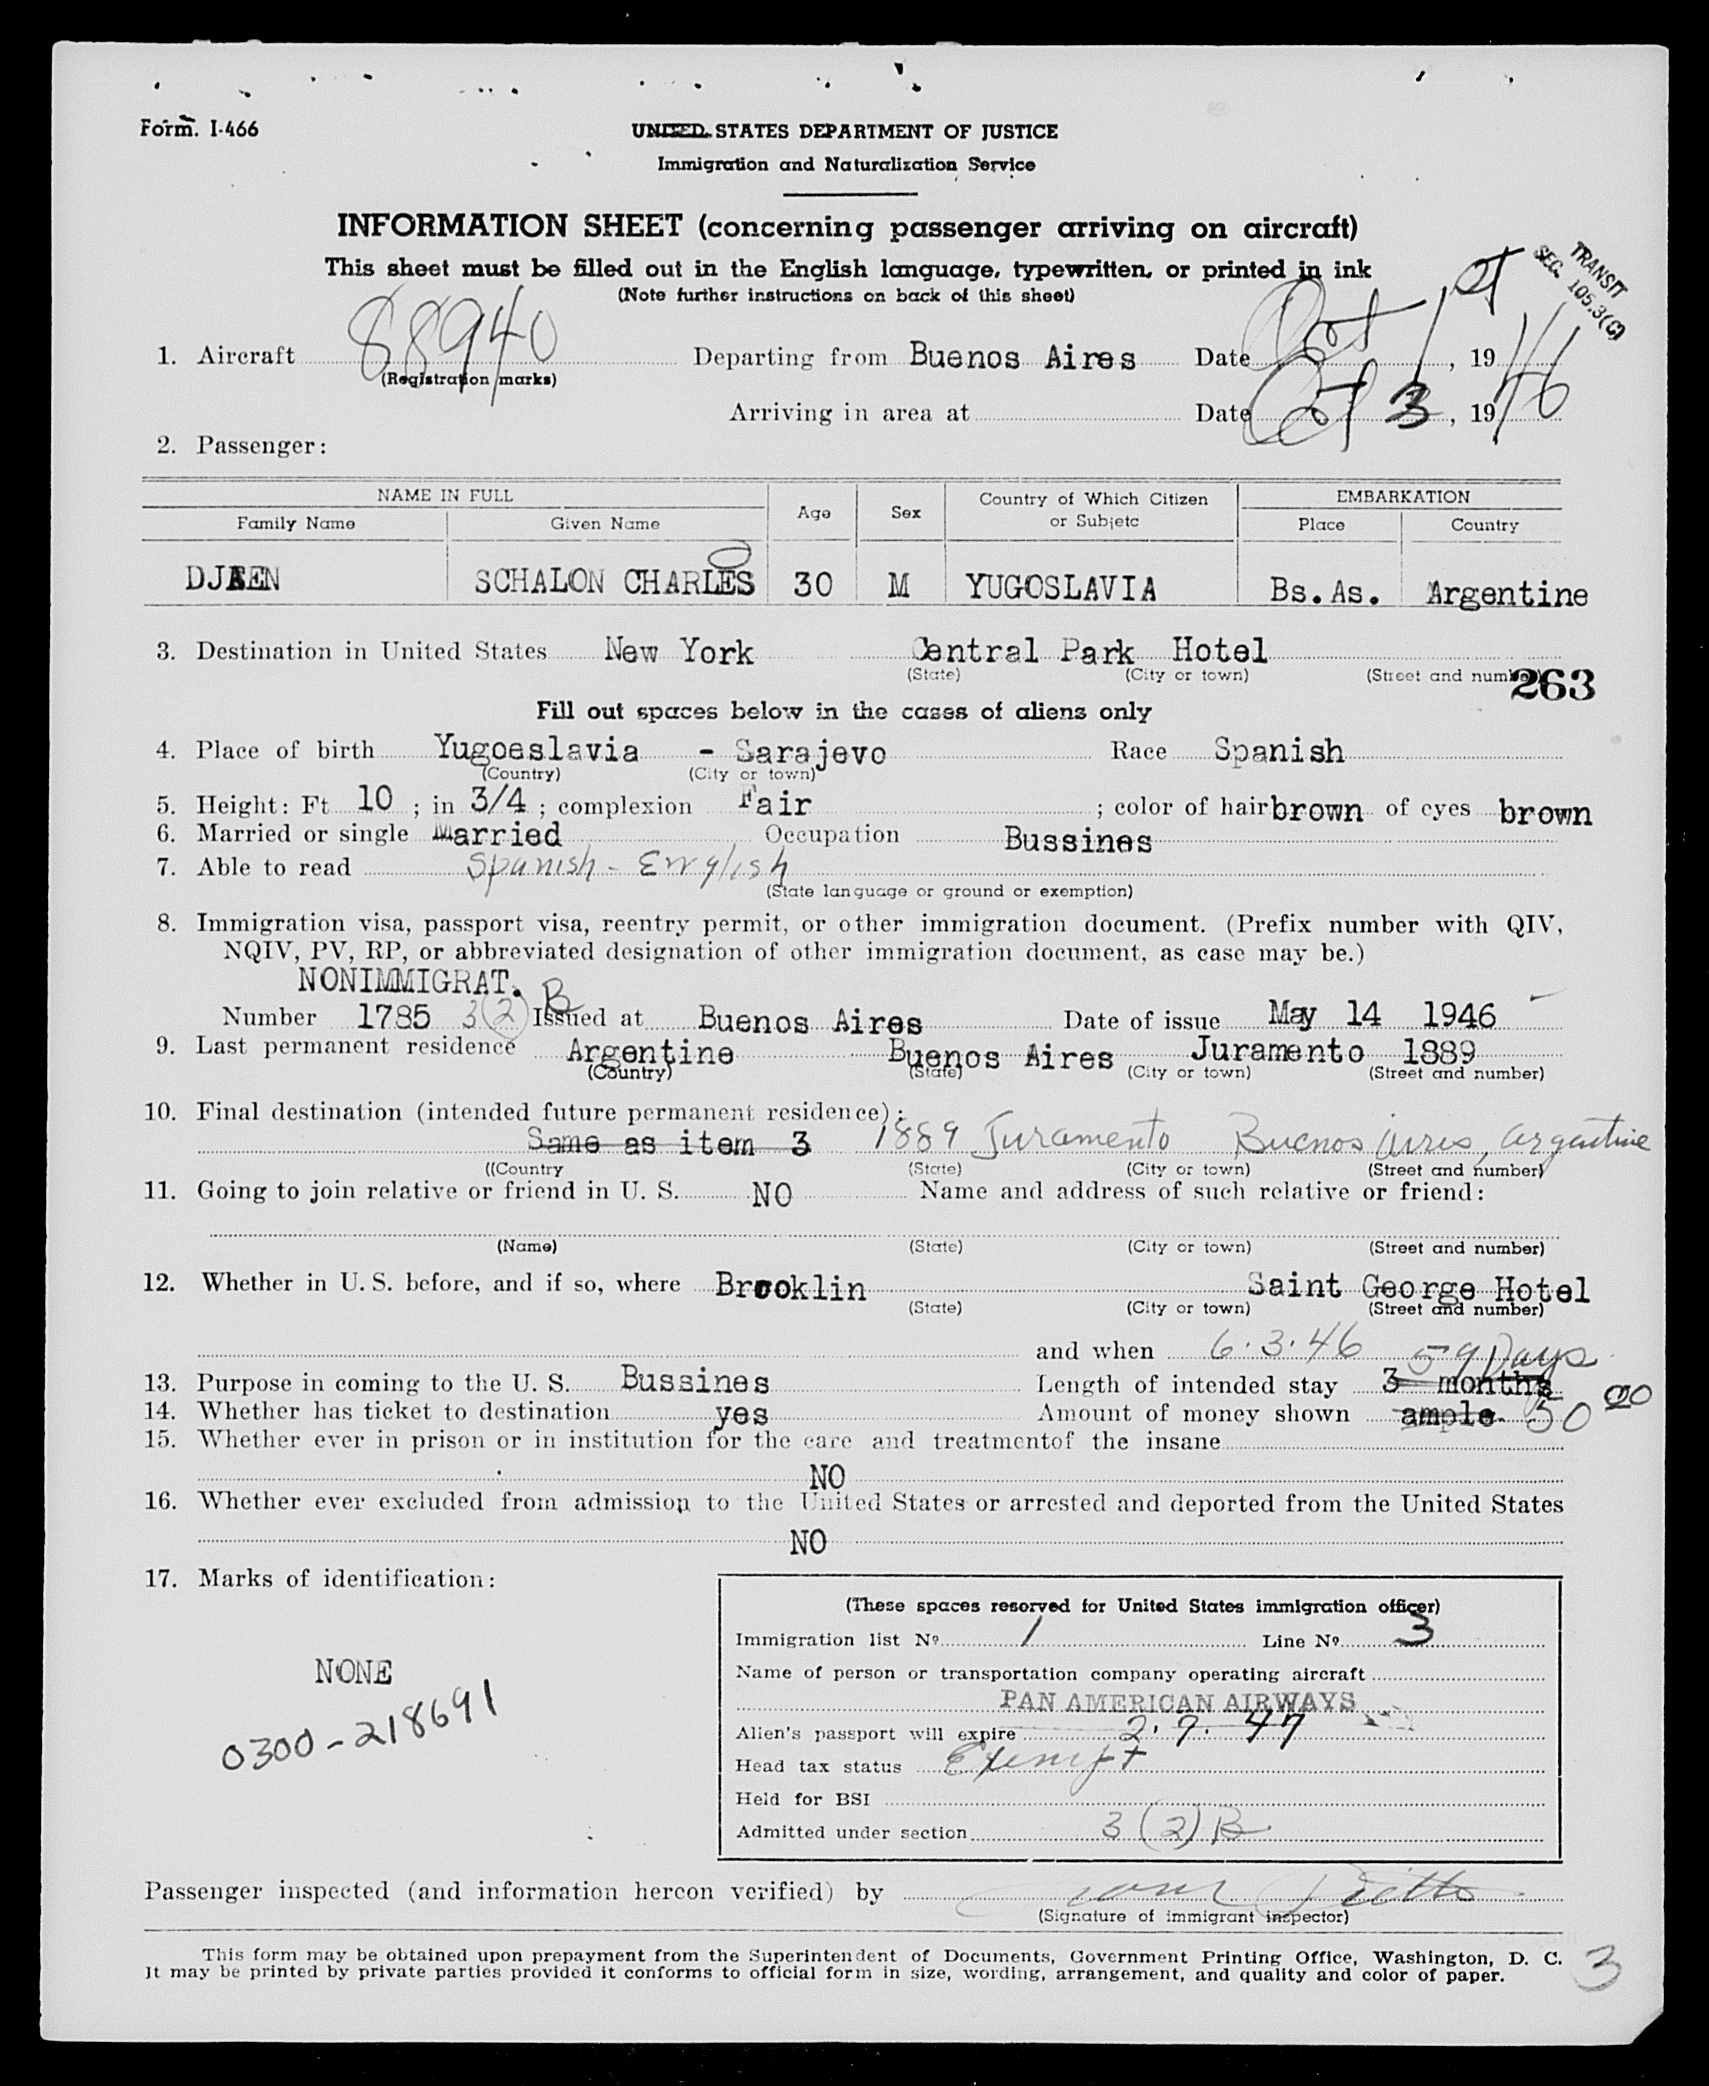 Form. I-466
UNITED STATES DEPARTMENT OF JUSTICE
Immigration and Naturalization Service
INFORMATION SHEET (concerning passenger arriving on aircraft)
This sheet must be filled out in the English language, typewritten, or printed in ink
(Note further instructions on back of this sheet)
TRANSIT
SEC. 105.3(C)
1. Aircraft 88940 Departing from Buenos Aires Date Oct 1st, 1946
(Registration marks)
Arriving in area at Date Oct 3, 1946
2. Passenger:
NAME IN FULL Age Sex Country of Which Citizen or Subjetc EMBARKATION
Family Name Given Name Place Country
DJAEN SCHALON CHARLES 30 M YUGOSLAVIA Bs.As. Argentine
3. Destination in United States New York Central Park Hotel
(State) (City or town) (Street and number)
263
Fill out spaces below in the cases of aliens only
4. Place of birth Yugoeslavia - Sarajevo Race Spanish
(Country) (City or town)
5. Height: Ft 10 ; in 3/4 ; complexion Fair ; color of hair brown of eyes brown
6. Married or single Married Occupation Bussines
7. Able to read Spanish - English
(State language or ground or exemption)
8. Immigration visa, passport visa, reentry permit, or other immigration document. (Prefix number with QIV,
NQIV, PV, RP, or abbreviated designation of other immigration document, as case may be.)
NONIMMIGRAT.
Number 1785 3(2)B Issued at Buenos Aires Date of issue May 14 1946
9. Last permanent residence Argentine Buenos Aires Juramento 1889
(Country) (State) (City or town) (Street and number)
10. Final destination (intended future permanent residence):
Same as item 3 1889 Juramento Buenos Aires, Argentine
((Country (State) (City or town) (Street and number)
11. Going to join relative or friend in U. S. NO Name and address of such relative or friend:
(Name) (State) (City or town) (Street and number)
12. Whether in U. S. before, and if so, where Brooklin Saint George Hotel
(State) (City or town) (Street and number)
and when 6.3.46 59 Days
13. Purpose in coming to the U. S. Bussines Length of intended stay 3 months
14. Whether has ticket to destination yes Amount of money shown ample. 50 00
15. Whether ever in prison or in institution for the care and treatmentof the insane
NO
16. Whether ever excluded from admission to the United States or arrested and deported from the United States
NO
17. Marks of identification:
NONE
0300-218691
(These spaces reserved for United States immigration officer)
Immigration list Nº 1 Line Nº 3
Name of person or transportation company operating aircraft
PAN AMERICAN AIRWAYS
Alien's passport will expire 2.9.47
Head tax status Exempt
Held for BSI
Admitted under section 3(2)B
Passenger inspected (and information hereon verified) by
(Signature of immigrant inspector)
This form may be obtained upon prepayment from the Superintendent of Documents, Government Printing Office, Washington, D. C.
It may be printed by private parties provided it conforms to official form in size, wording, arrangement, and quality and color of paper.
3